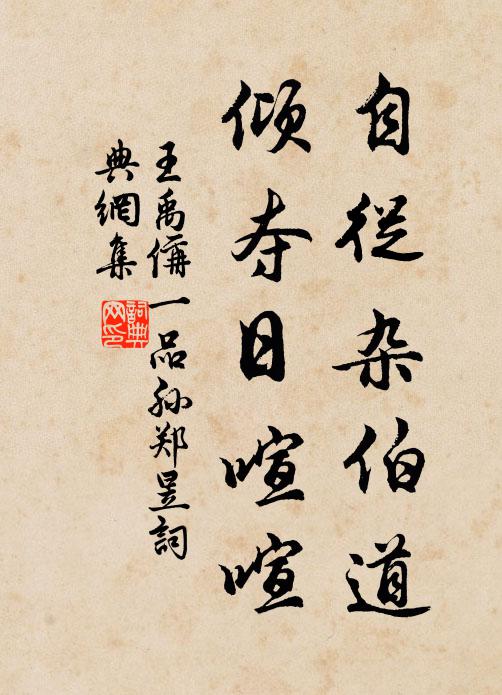 自从杂伯道
倾夺日喧喧
王禹偁一品孙郑昱詞
典網集
詞典
网印